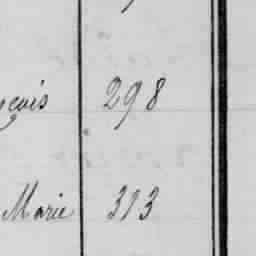 çois 298
Marie 313